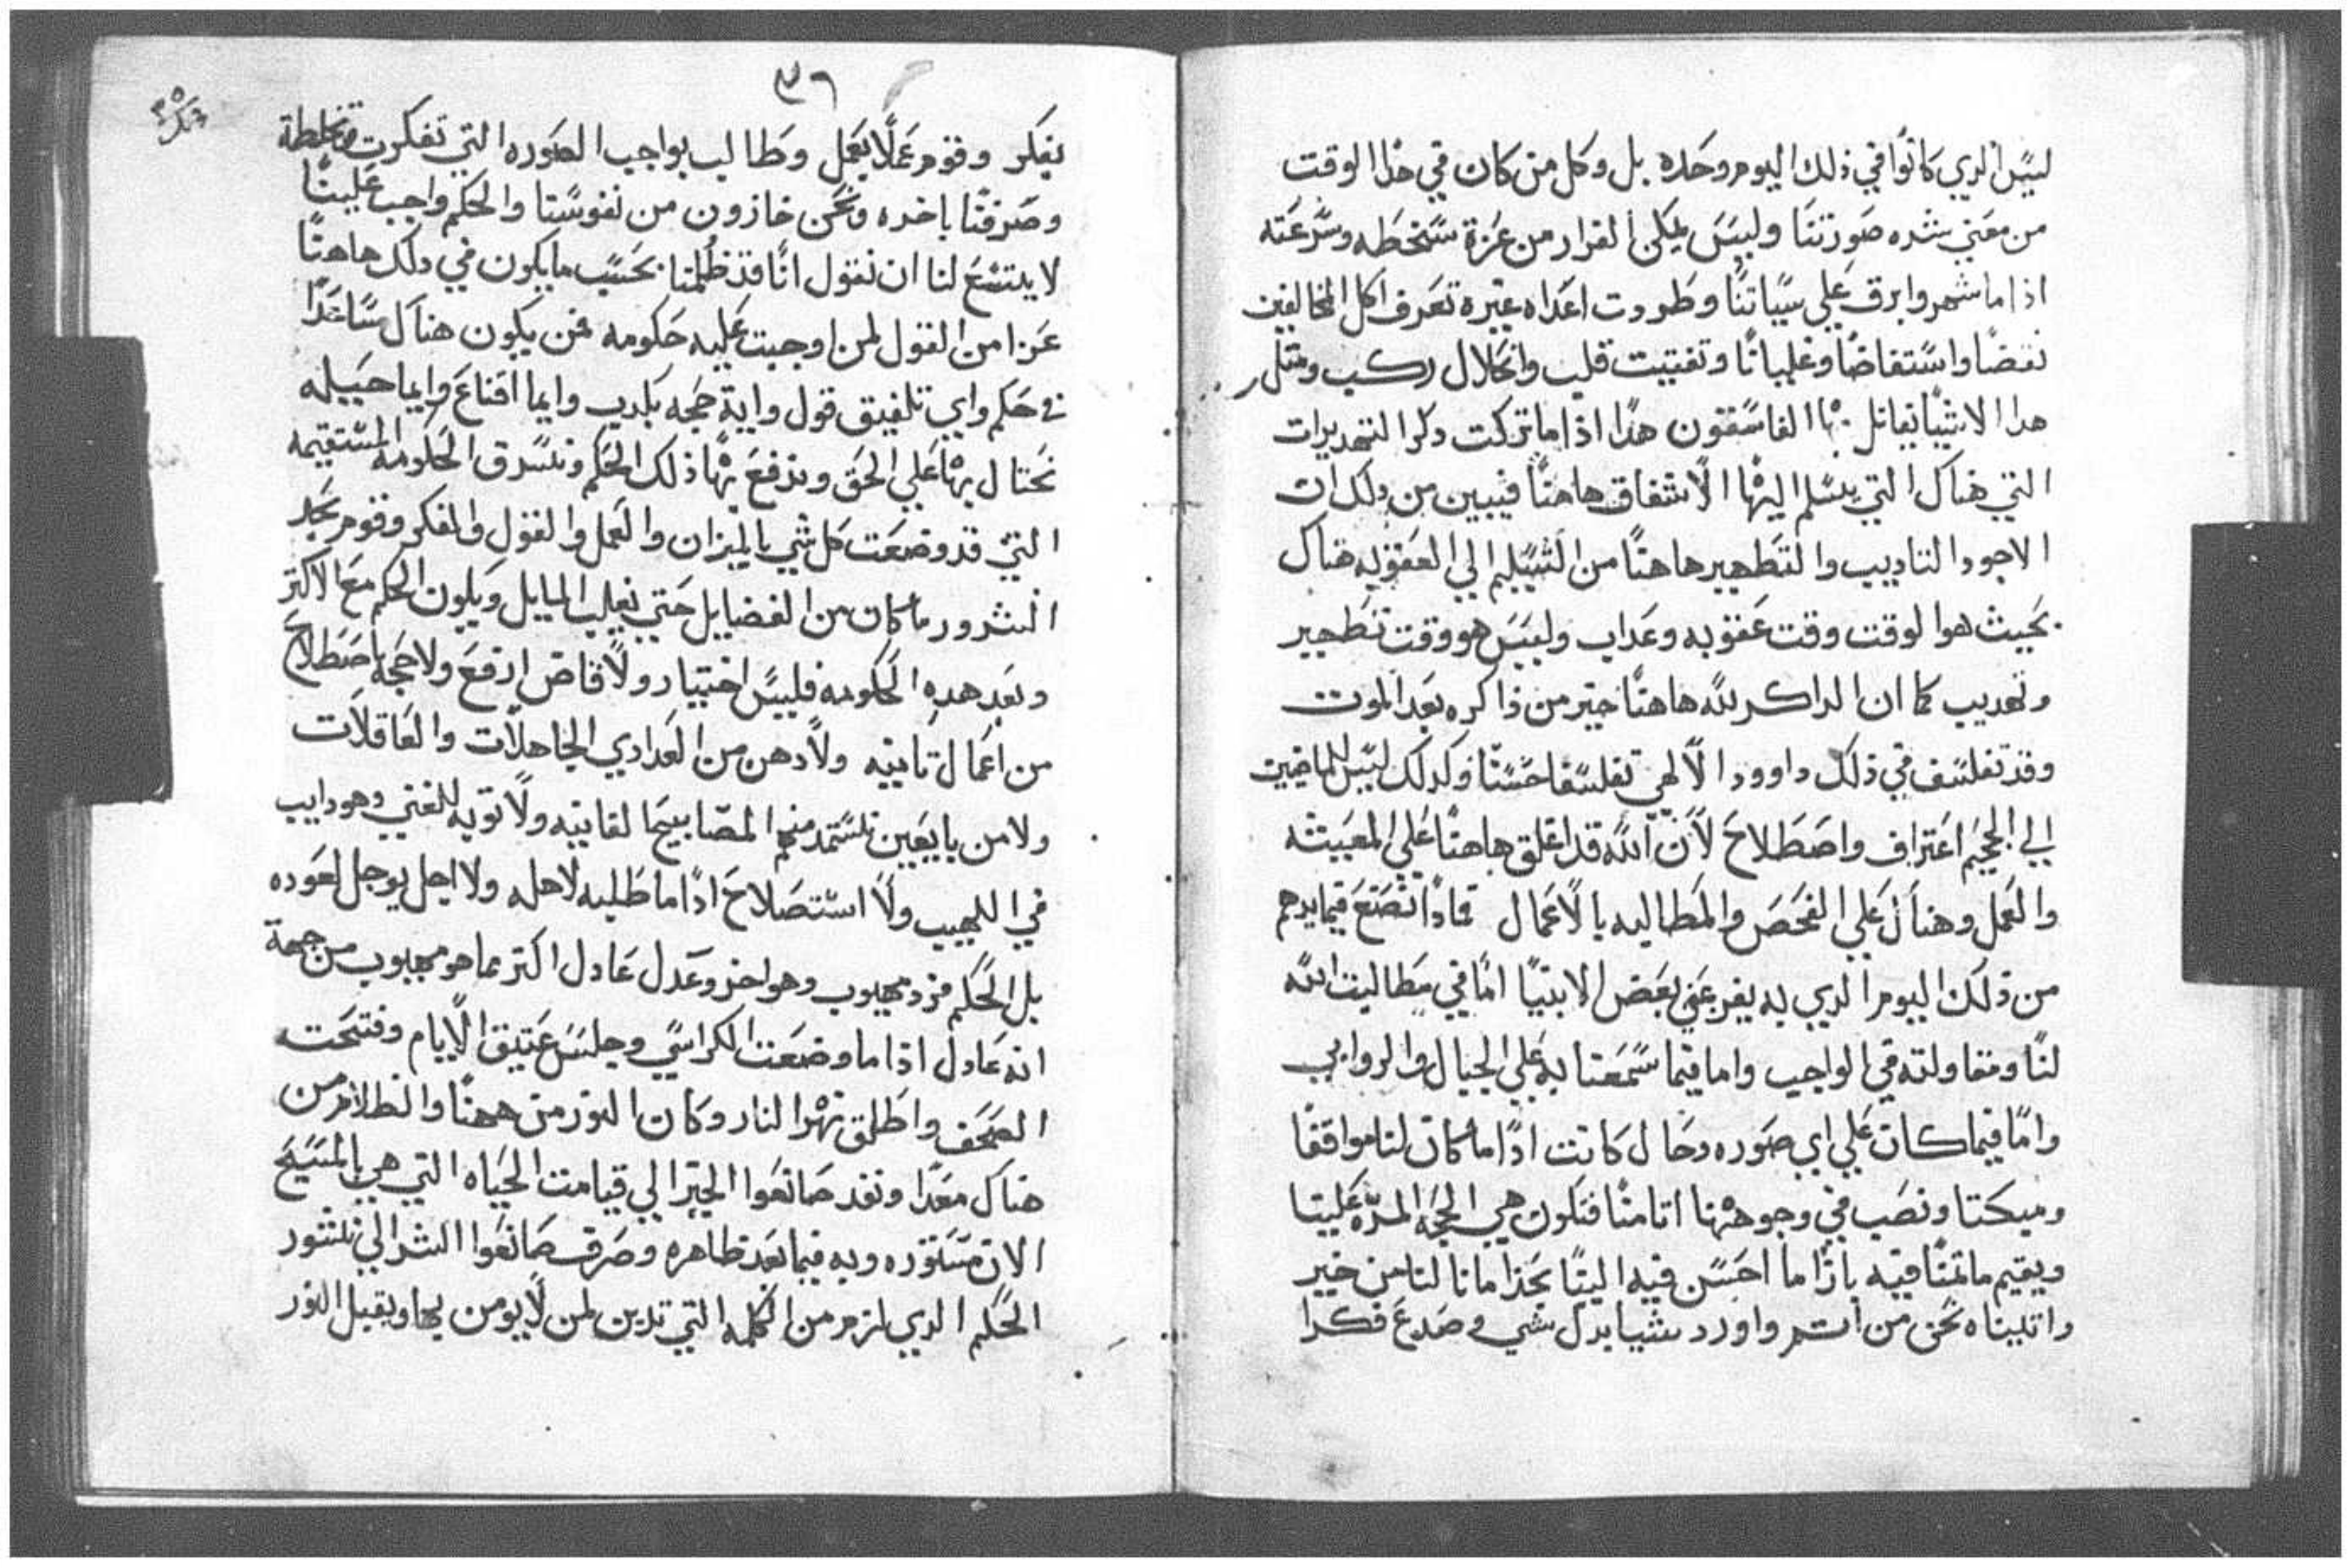 ليس الدي كانوا في ذلك اليوم وحده بل وكل من كان في هذا الوقت
من معني شده صورتنا وليس يمكن الفرار من عزة سخطه وسرعته
اذا ما شهر وابرق علي سياتنا وطردت اعداه غيره تعرف اكل المخالفين
نفضا واستفاضا وغليانا وتفتيت قلب وانحلال ركب ومثل
هدا الاشيا يقاتل بها الفاسقون هدا اذا ما تركت دكر التهديدات
التي هناك التي يسلم اليها الاشفاق هاهنا فيبين من دلك ان
الاجود التاديب والتطهير هاهنا من التسليم الي العقوبه هناك
بحيث هو الوقت وقت عقوبه وعداب وليس هو وقت تطهير
وتهديب كما ان الداكر لله هاهنا خير من ذاكره بعد الموت
وقد تفلسف في ذلك داوود الالهي تفلسفا حسنا وكدلك ليس للماضين
الي الجحيم اعتراف واصطلاح لان الله قد اغلق هاهنا علي المعيشه
والعمل وهناك علي الفحص والمطالبه بالاعمال فماذا نصنع فيما يدهم
من ذلك اليوم الدي به يفزعني بعض الانبيا اما في مطالبت الله
لنا ومقاولته في الواجب واما فيما سمعنا به علي الجبال والروابي
واما فيما كان علي اي صوره وحال كانت اذا ما كان لنا مواقفا
ومبكتا ونصب في وجوهنا اثامنا فتكون هي الحجه المره علينا
ويقيم ماتمنا فيه بازا ما احسن فيه الينا بحذا مانا لنا من خير
واتيناه نحن من اثم واورد شيا بدل شي وصدع فكرا
٣٦
بفكر وقوم عملا بعمل وطالب بواجب الصوره التي تفكرت مختلطة
وصرفنا باخده ونحن خازون من نفوسنا والحكم واجب علينا
لا يتسع لنا ان نقول انا قد ظلمنا بحسب ما يكون في دلك هاهنا
عزا من القول لمن اوجبت عليه حكومه فمن يكون هناك ساعدا
في حكم واي تلفيق قول واية حجه بكدب وايما اقناع وايما حيله
نحتال بها علي الحق وندفع بها ذلك الحكم ونسرق الحكومه المستقيمه
التي قد وضعت كل شي بالميزان والعمل والقول والفكر وقوم بحد
الشرور ما كان من الفضايل حتي يغلب المايل ويكون الحكم مع الاكثر
وبعد هده الحكومه فليس اختيار ولا قاض ارفع ولا حجه باصطلاح
من اعمال تانيه ولا دهن من العداري الجاهلات والعاقلات
ولا من بايعين تستمد منهم المصابيح الفانيه ولا توبه للغني وهو دايب
في اللهيب ولا استصلاح اذا ما طلبه لاهله ولا اجل يوجل لعوده
بل الحكم فرد مهيوب وهو اخر وعدل عادل اكتر مما هو مهيوب من جهة
انه عادل اذا ما وضعت الكراسي وجلس عتيق الايام وفتحت
الصحف واطلق نهر النار وكان النور من ههنا والظلام من
هناك معدا ونفد صانعوا الخير الي قيامت الحياه التي هي بالمسيح
الان مستوره وبه فيما بعد ظاهره وصرف صانعوا الشر الي نشور
الحكم الدي لزم من الكلمه التي تدين لمن لا يومن بها ويقبل النور